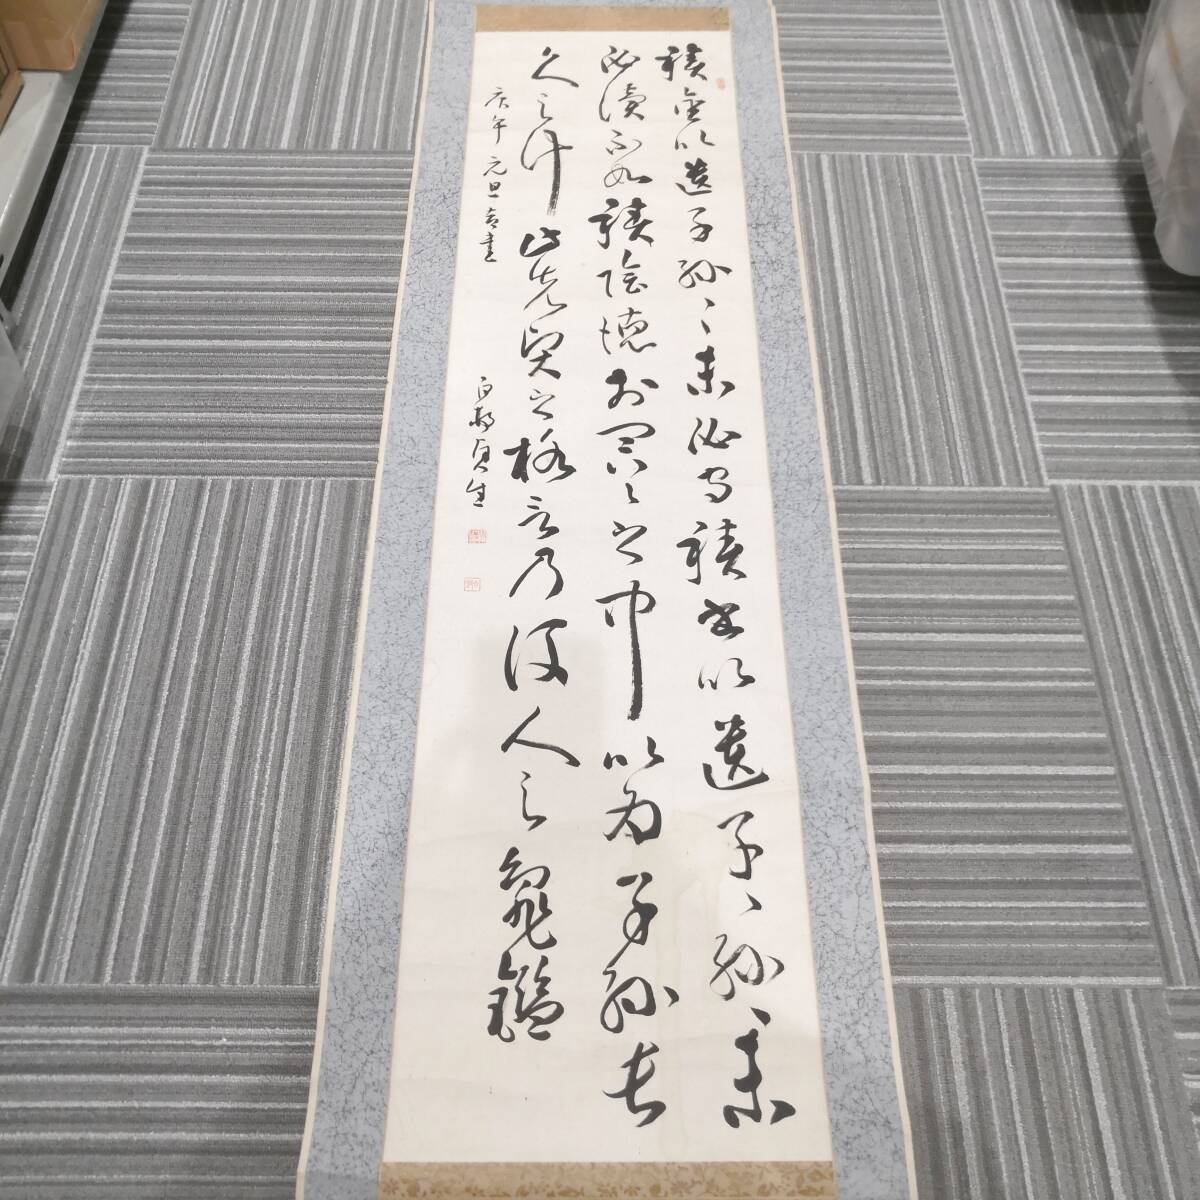 積金以遺子孫〻未必守積書以遺子〻孫〻未
必讀不如積陰德於冥〻之中以為子孫長
久之計此先賢之格言乃後人之龜鑑
庚午元旦書
貞生